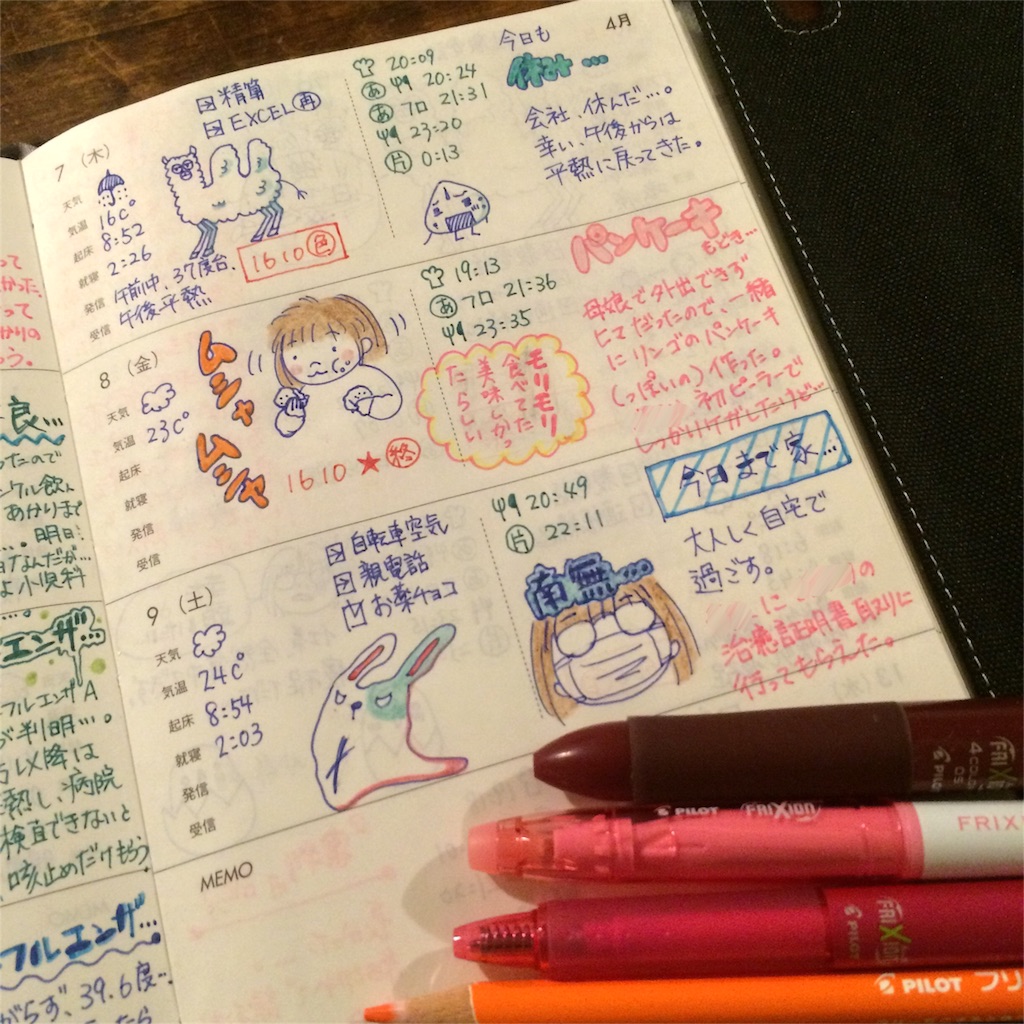 4月
7 (木)
天気
気温 16℃
起床 8:52
就寝 2:26
発信 午前中、37度台、
受信 午後平熱
精算
EXCEL 再
1610 色
20:09
あ 20:24
あ フロ 21:31
23:20
片 0:13
今日も
休み…
会社、休んだ…。
幸い、午後からは
平熱に戻ってきた。
8 (金)
天気
気温 23℃
起床
就寝
発信
受信
ムシャ
ムシャ
1610 ★ 終
19:13
あ フロ 21:36
23:35
モリモリ
食べてた
美味しかっ
たらしい
パンケーキ
もどき…
母娘で外出できず
ヒマだったので、一緒
にリンゴのパンケーキ
(っぽいの)作った。
初ピーラーで
しっかりケガしたけど
9 (土)
天気
気温 24℃
起床 8:54
就寝 2:03
発信
受信
自転車空気
親電話
お薬チョコ
20:49
片 22:11
南無…
今日まで家…
大人しく自宅で
過ごす。
に の
治癒証明書取りに
行ってもらえた。
MEMO
13 (水)
良…
ったので
あかりまで
…。明日
小児科
エンザ…
フルエンザA
判明…。
以降は
熱し、病院
検査できないと
咳止めだけもらう
フルエンザ…
がらず、39.6度…
FRIXION
4COLOR
05
PILOT
PILOT FRIXION
FRIXI
FRIXION
PILOT
PILOT フリ